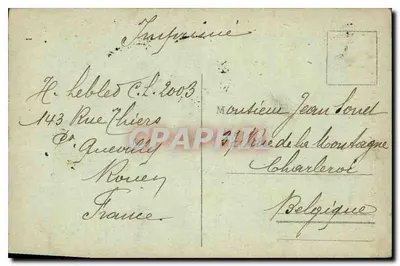 Imprimé
H. Lebled C.L. 2003
143 Rue Thiers
Gd Quevilly
Rouen
France
Monsieur Jean
39 Rue de la Montagne
Charleroi
Belgique
CARTAPHILIE